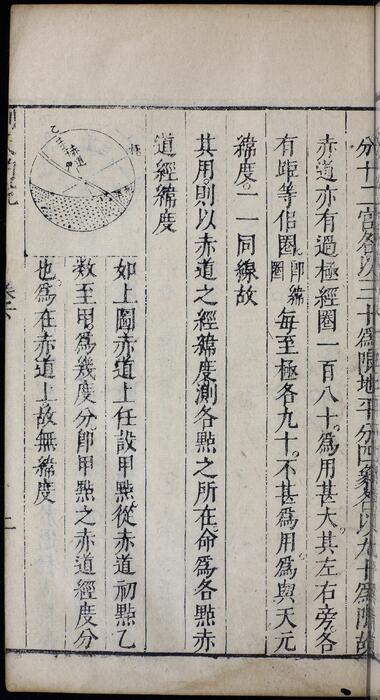 分十二宮各以三十爲限地平分四象各以九十爲限故
赤道亦有過極經圈一百八十爲用甚大其左右旁各
有距等侣圈即緯圈每至極各九十不甚爲用爲與天元
緯度一一同線故
其用則以赤道之經緯度測各點之所在命爲各點赤
道經緯度
如上圖赤道上任設甲點從赤道初點乙
數至甲爲幾度分即甲點之赤道經度分
也爲在赤道上故無緯度
乙
赤道
甲